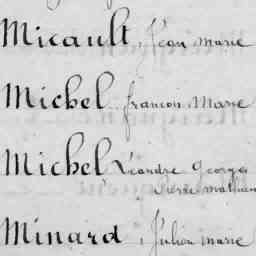 Micault, Jean Marie
Michel françois Marie
Michel, Léandre Georges
Pierre Mathurin
Minard, Julien Marie